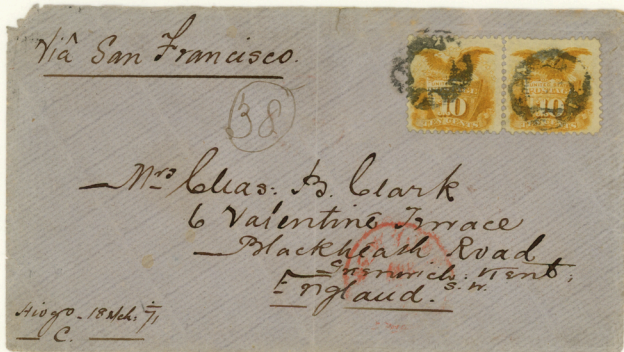 Via San Francisco.
38
10
TEN CENTS
10
Mrs Chas: B. Clark
6 Valentine Terrace
Blackheath Road
Greenwich: Kent;
S.W.
England.
Hiogo - 18 Mch: /71
C.